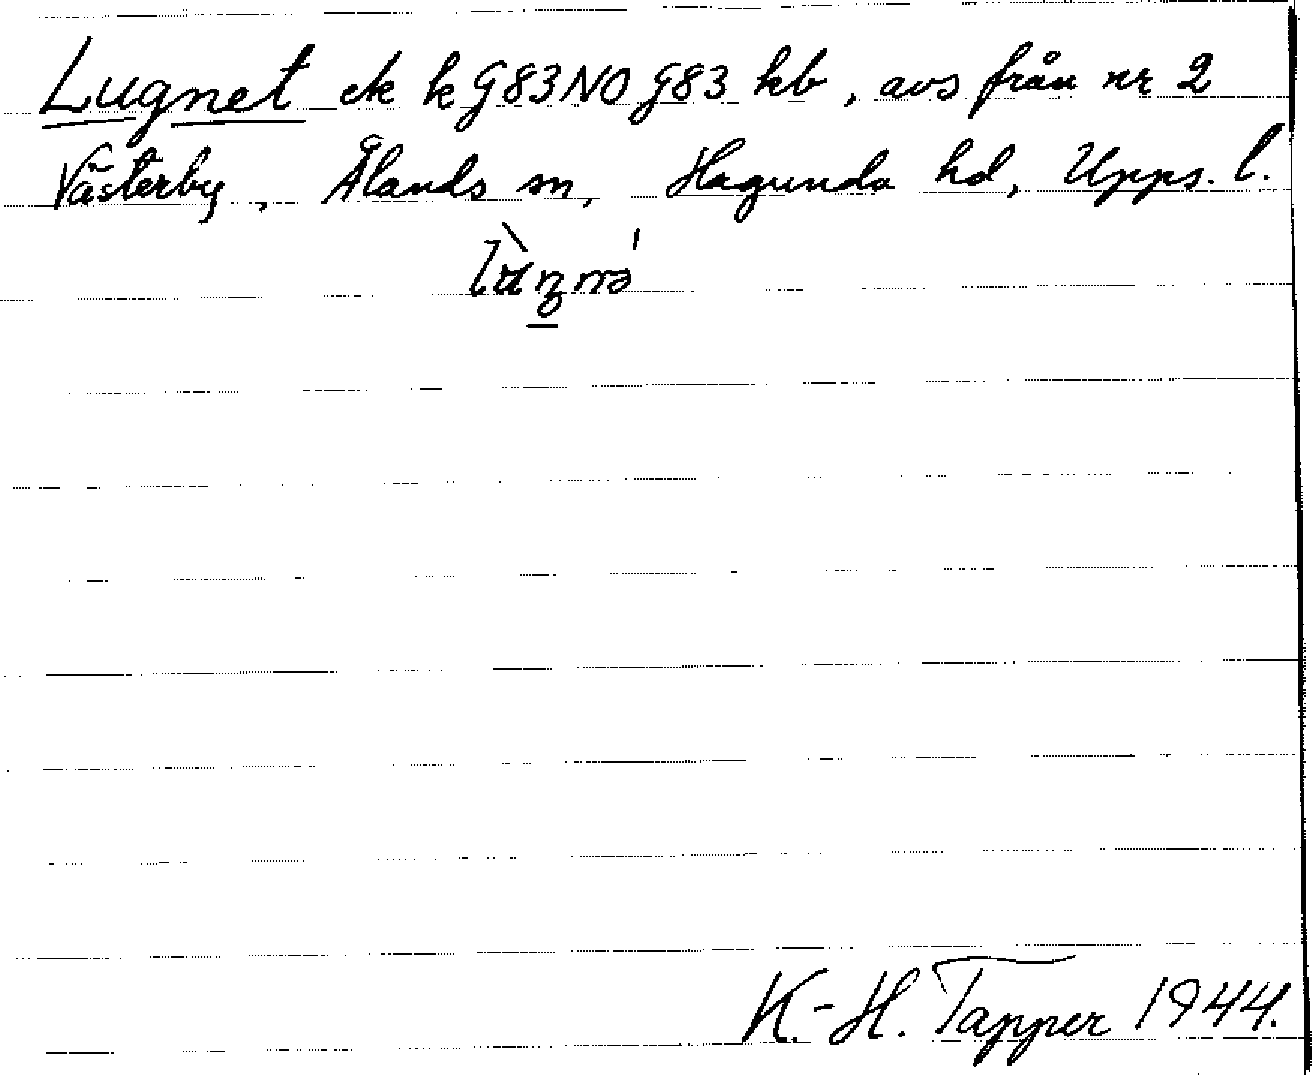 Lugnet ek k G83NO G83 kb, avs från nr 2
Västerby, Ålands sn, Hagunda hd, Upps. l.
K.-H. Tapper 1944.